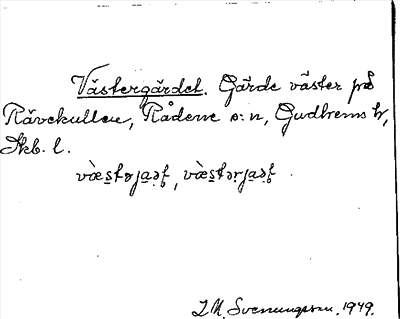 Västergärdet. Gärde väster på
Rävekullen, Rådene s:n, Gudhems hd,
Skb. l.
vàestəja̱ə̣t, vàestərja̱ə̣t
S.M. Svenungsson. 1949.